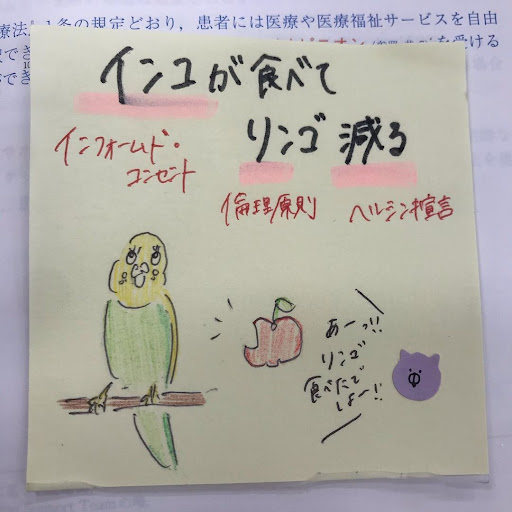 療法」1条の規定どおり，患者には医療や医療福祉サービスを自由
を受ける
インコが食べて
リンゴ 減る
インフォームド・
コンセント
倫理原則
ヘルシンキ宣言
あーっ!!
リンゴ
食べたで
しょー!!